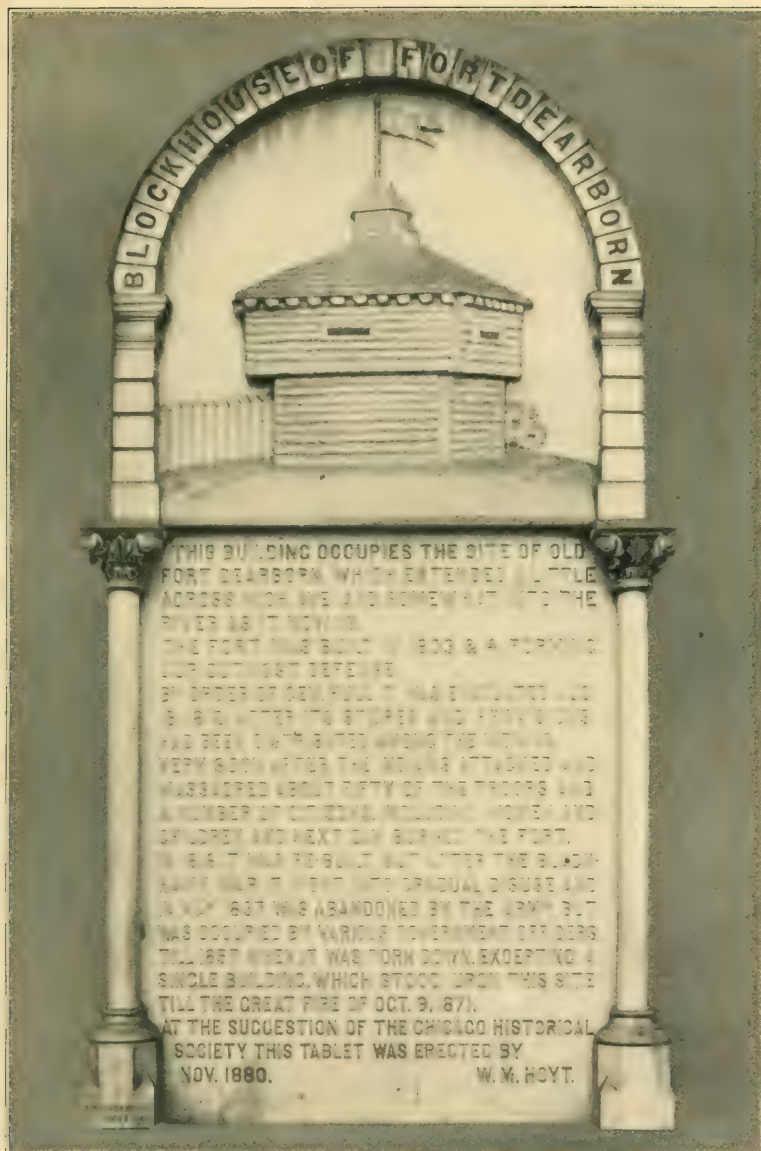 BLOCKHOUSE OF FORT DEARBORN
THIS BUILDING OCCUPIES THE SITE OF OLD
FORT DEARBORN, WHICH EXTENDED A LITTLE
ACROSS MICH. AVE. AND SOMEWHAT INTO THE
RIVER AS IT NOW IS.
THE FORT WAS BUILT IN 1803 & 4, FORMING
OUR OUTMOST DEFENSE.
BY ORDER OF GEN. HULL IT WAS EVACUATED AUG.
15, 1812, AFTER ITS STORES AND PROVISIONS
HAD BEEN DISTRIBUTED AMONG THE INDIANS.
VERY SOON AFTER THE INDIANS ATTACKED AND
MASSACRED ABOUT FIFTY OF THE TROOPS AND
A NUMBER OF CITIZENS, INCLUDING WOMEN AND
CHILDREN AND NEXT DAY BURNED THE FORT.
IN 1816 IT WAS RE-BUILT, BUT AFTER THE BLACK-
HAWK WAR IT WENT INTO GRADUAL DISUSE AND
IN MAY 1837 WAS ABANDONED BY THE ARMY, BUT
WAS OCCUPIED BY VARIOUS GOVERNMENT OFFICERS
TILL 1857 WHEN IT WAS TORN DOWN, EXCEPTING A
SINGLE BUILDING, WHICH STOOD UPON THIS SITE
TILL THE GREAT FIRE OF OCT. 9, 1871.
AT THE SUGGESTION OF THE CHICAGO HISTORICAL
SOCIETY THIS TABLET WAS ERECTED BY
NOV. 1880. W. M. HOYT.